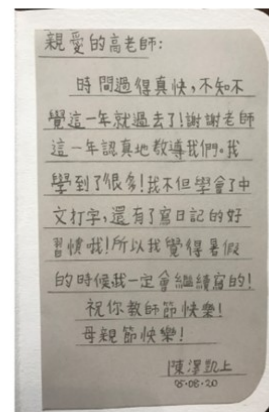 親愛的高老師:
時間過得真快,不知不
覺這一年就過去了!謝謝老師
這一年認真地教導我們。我
學到了很多!我不但學會了中
文打字,還有了寫日記的好
習慣哦!所以我覺得暑假
的時候我一定會繼續寫的!
祝你教師節快樂!
母親節快樂!
陳澤凱上